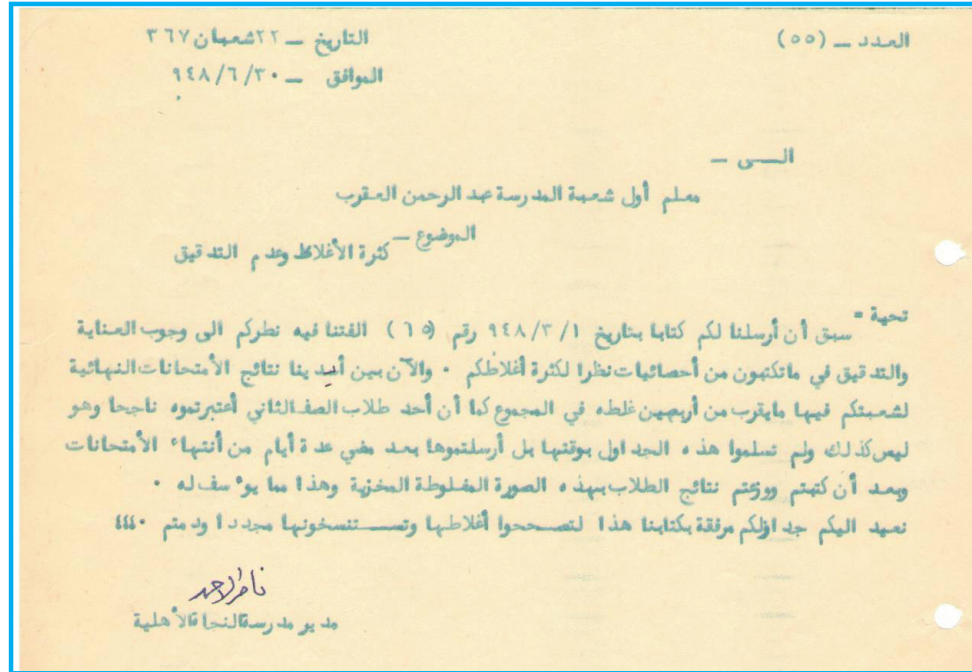 العدد ــ (٥٥)
التاريخ ــ ٢٢ شعبان ٣٦٧
الموافق ــ ٩٤٨/٦/٣٠
الـــى ــ
معلم أول شعبة المدرسة عبد الرحمن العقرب
الموضوع ــ كثرة الأغلاط وعدم التدقيق
تحية =
سبق أن أرسلنا لكم كتابا بتاريخ ٩٤٨/٣/١ رقم (٦٥) الفتنا فيه نظركم الى وجوب العناية
والتدقيق في ماتكتبون من أحصائيات نظرا لكثرة أغلاطكم ٠ والآن بين أيدينا نتائج الأمتحانات النهائية
لشعبتكم فيها مايقرب من أربعين غلطه في المجموع كما أن أحد طلاب الصف الثاني أعتبرتموه ناجحا وهو
ليس كذلك ولم تسلموا هذه الجداول بوقتها بل أرسلتموها بعد مضي عدة أيام من أنتهاء الأمتحانات
وبعد أن كتبتم ووزعتم نتائج الطلاب بهذه الصورة المغلوطة المخزية وهذا مما يوءسف له ٠
نعيد اليكم جداولكم مرفقة بكتابنا هذا لتصححوا أغلاطها وتســتنسخونها مجددا ودمتم ٠
ناصر الأحمد
مدير مدرسة النجاة الأهلية